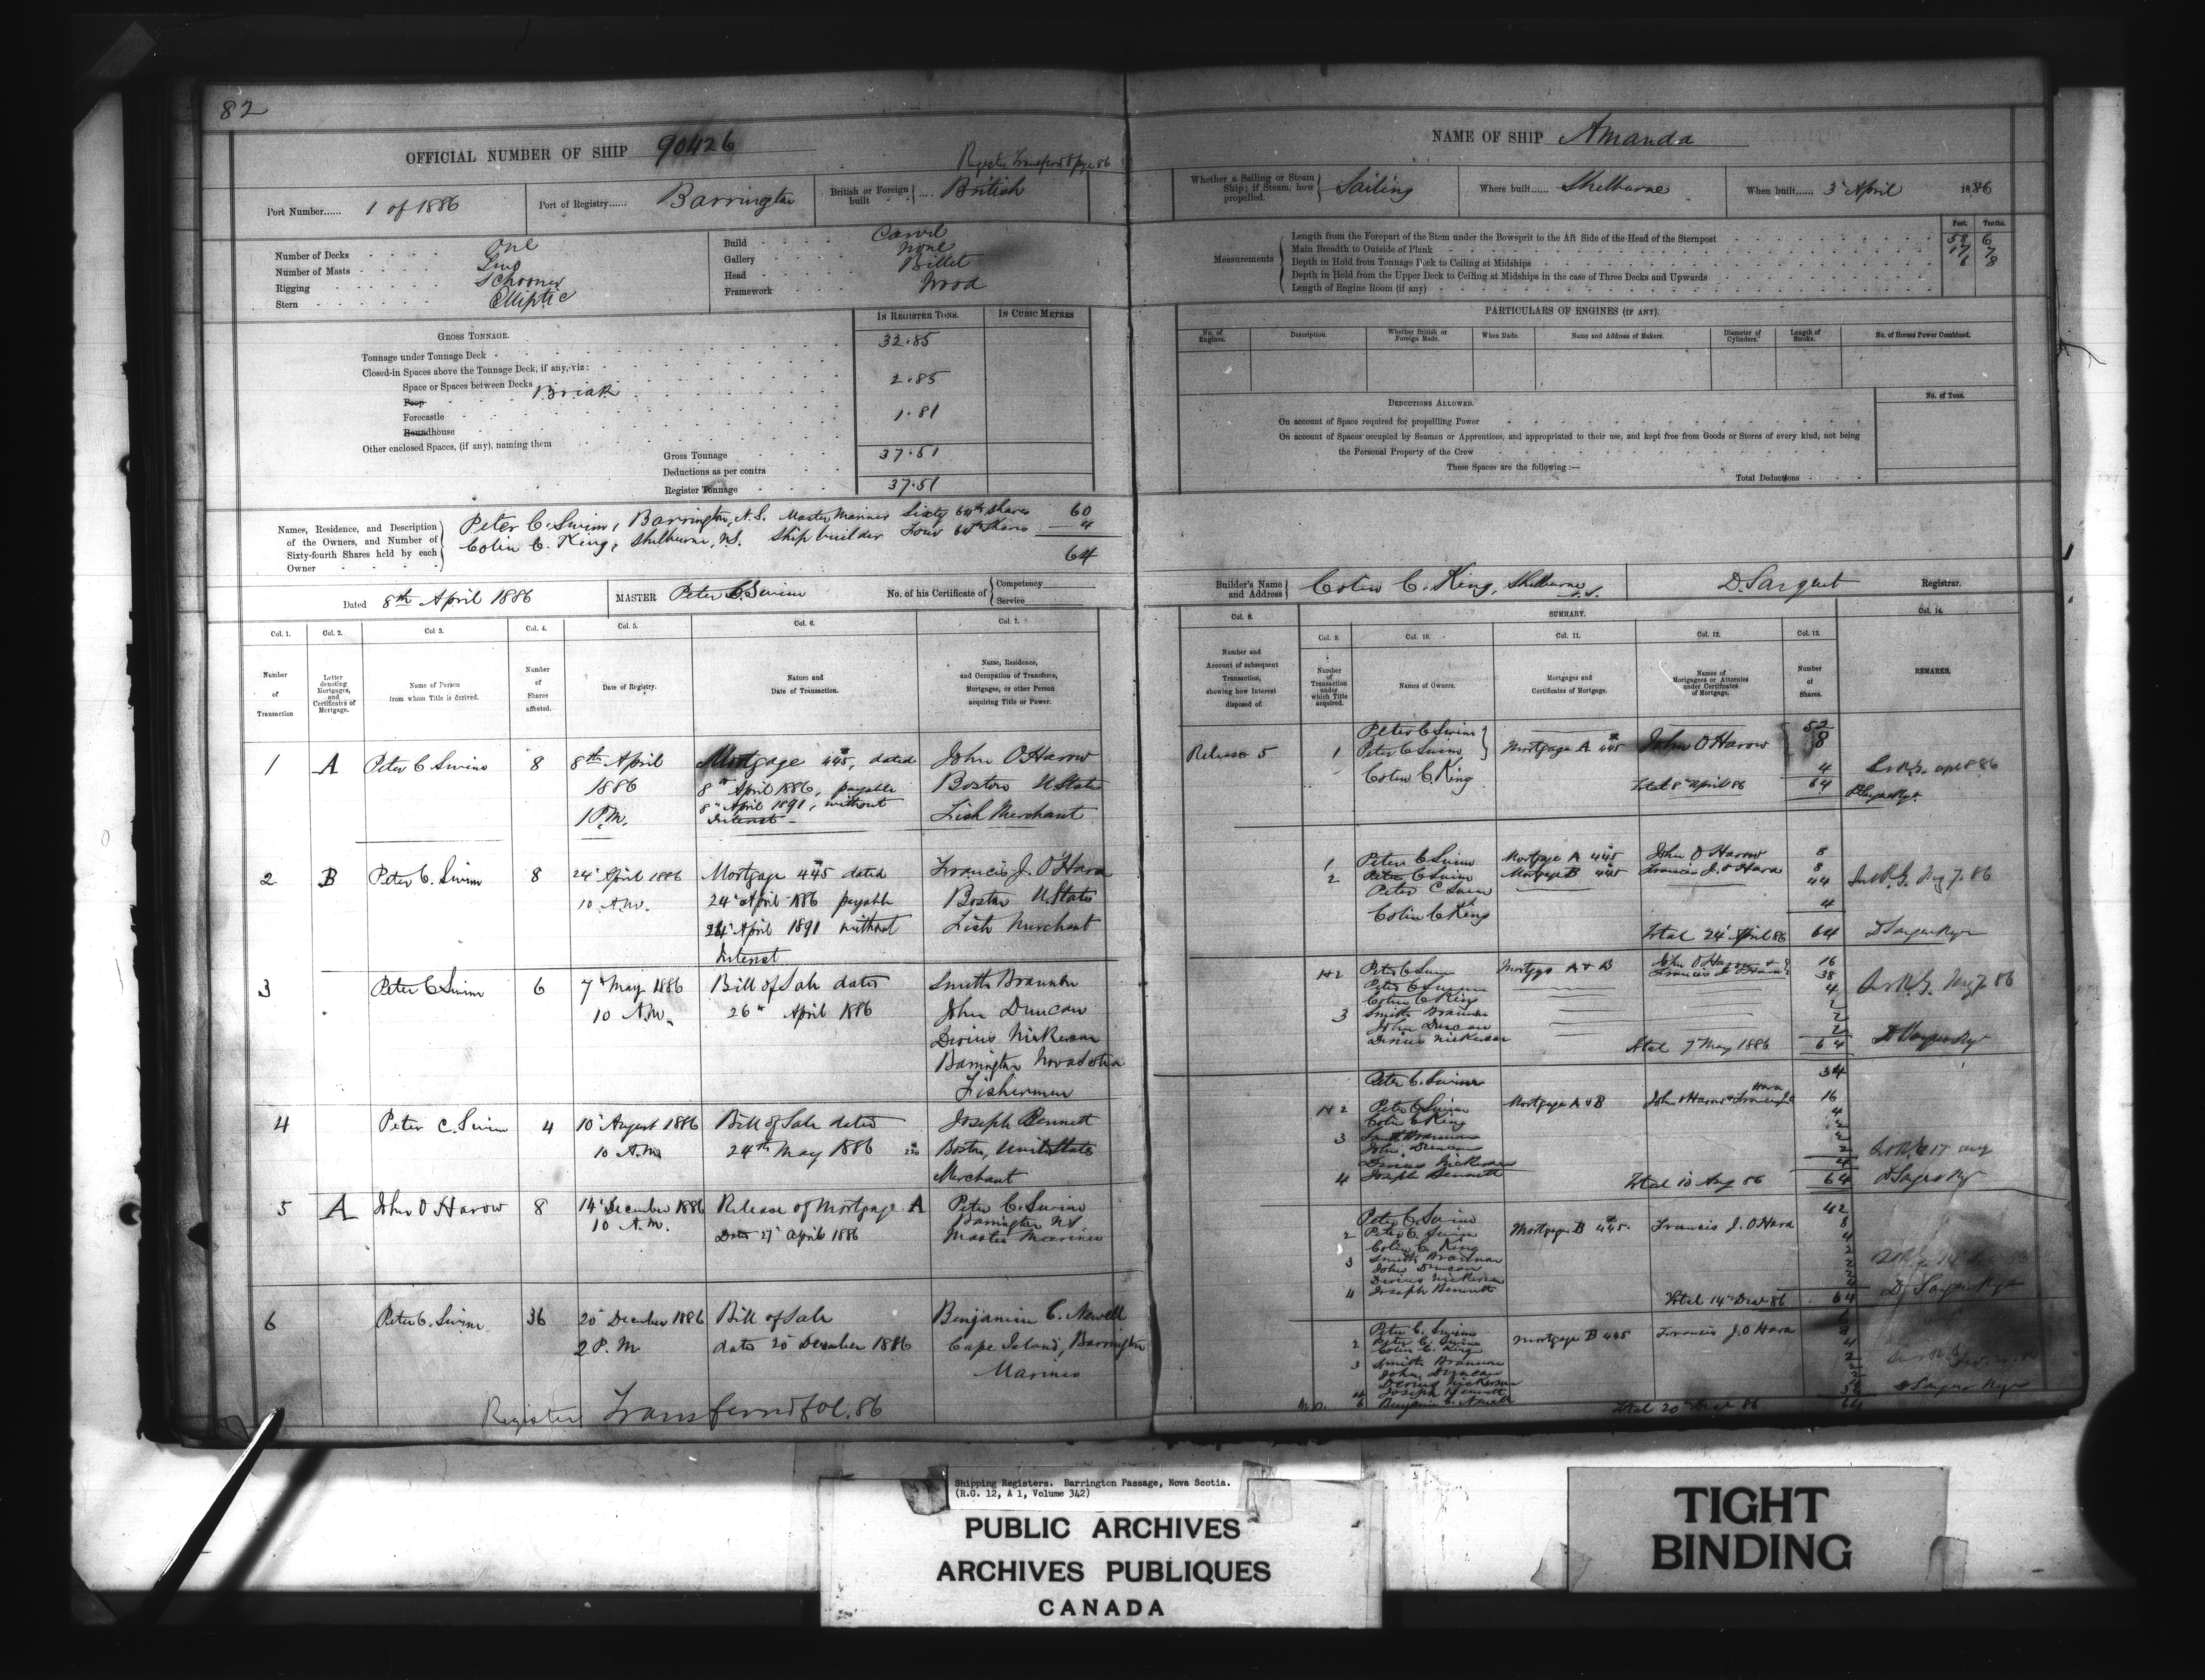 82
OFFICIAL NUMBER OF SHIP 90426
Register Transferred page 86
Port Number...... 1 of 1886
Port of Registry...... Barrington
British or Foreign built .... British
Number of Decks One
Number of Masts Two
Rigging Schooner
Stern Elliptic
Build Carvel
Gallery None
Head Billet
Framework Wood
GROSS TONNAGE.
IN REGISTER TONS.
IN CUBIC METRES
Tonnage under Tonnage Deck 32.85
Closed-in Spaces above the Tonnage Deck, if any, viz:
Space or Spaces between Decks 2.85
Poop Break
Forecastle 1.81
Roundhouse
Other enclosed Spaces, (if any), naming them
Gross Tonnage 37.51
Deductions as per contra
Register Tonnage 37.51
Names, Residence, and Description of the Owners, and Number of Sixty-fourth Shares held by each Owner
Peter C. Swim, Barrington, N.S. Master Mariner Sixty 64th shares 60
Colin C. King, Shelburne, N.S. Ship builder Four 64th shares 4
64
Dated 8th April 1886
MASTER Peter C Swim
No. of his Certificate of Competency Service
Col. 1. Col. 2. Col 3. Col. 4. Col. 5. Col. 6. Col. 7.
Number of Transaction
Letter denoting Mortgages, and Certificates of Mortgage.
Name of Person from whom Title is derived.
Number of Shares affected.
Date of Registry.
Nature and Date of Transaction.
Name, Residence, and Occupation of Transferee, Mortgagee, or other Person acquiring Title or Power.
1 A Peter C Swim 8 8th April Mortgage 445, dated John O Harow
1886 8th April 1886, payable Boston U States
1 P.M. 8th April 1891, without Fish Merchant
Interest
2 B Peter C. Swim 8 24 April 1886 Mortgage 445 dated Francis J. O Hara
10 A.M. 24 April 1886 payable Boston U States
24 April 1891 without Fish Merchant
Interest
3 Peter C Swim 6 7 May 1886 Bill of Sale dated Smith Brannan
10 A.M. 26th April 1886 John Duncan
Nickerson
Barrington Nova Scotia
Fishermen
4 Peter C. Swim 4 10 August 1886 Bill of Sale dated Joseph Bennett
10 A.M. 24th May 1886 Boston, United States
Merchant
5 A John O Harow 8 14 December 1886 Release of Mortgage A Peter C. Swim
10 A.M. Dated 27 April 1886 Barrington NS.
Master Mariner
6 Peter C. Swim 36 20 December 1886 Bill of Sale Benjamin C. Newell
2 P.M. dated 20 December 1886 Cape Island, Barrington
Mariner
Register Transferred fol. 86
NAME OF SHIP Amanda
Whether a Sailing or Steam Ship; if Steam, how propelled. Sailing
Where built...... Shelburne
When built...... 3 April 1886
Feet. Tenths.
Measurements
Length from the Forepart of the Stem under the Bowsprit to the Aft Side of the Head of the Sternpost 6
Main Breadth to Outside of Plank 17 7
Depth in Hold from Tonnage Deck to Ceiling at Midships 6 8
Depth in Hold from the Upper Deck to Ceiling at Midships in the case of Three Decks and Upwards
Length of Engine Room (if any)
PARTICULARS OF ENGINES (IF ANY).
No. of Engines.
Description.
Whether British or Foreign Made.
When Made.
Name and Address of Makers.
Diameter of Cylinders.
Length of Stroke.
No. of Horses Power Combined.
DEDUCTIONS ALLOWED.
No. of Tons.
On account of Space required for propelling Power
On account of Spaces occupied by Seamen or Apprentices, and appropriated to their use, and kept free from Goods or Stores of every kind, not being the Personal Property of the Crew
These Spaces are the following :—
Total Deductions
Builder's Name and Address Colin C. King, Shelburne N.S.
D. Sargent Registrar.
Col. 8. SUMMARY. Col. 14.
Col. 9. Col. 10. Col. 11. Col. 12. Col. 13.
Number and Account of subsequent Transaction, showing how Interest disposed of.
Number of Transaction under which Title acquired.
Names of Owners.
Mortgages and Certificates of Mortgage.
Names of Mortgagees or Attornies under Certificates of Mortgage.
Number of Shares.
REMARKS.
Peter C Swim 52
Release 5 1 Peter C Swim Mortgage A 445 John O Harow 8
Colin C. King 4
Total 8 April 86 64
1 Peter C Swim Mortgage A 445 John O Harow 8
2 Peter C Swim Mortgage B 445 Francis J. O Hara 8
Peter C Swim 44
Colin C King 4
Total 24 April 86 64
1+2 Peter C Swim Mortgage A + B John O Harow + Francis J O Hara 16
Peter C Swim 38
Colin C King 4
3 Smith Brannan 2
John Duncan 2
Nickerson 2
Total 7 May 1886 64
Peter C. Swim 34
1+2 Peter C Swim Mortgage A + B 16
Colin C King 4
3 Smith Brannan 2
John Duncan 2
Nickerson 2
4 Joseph Bennett 4
Total 10 Aug 86 64
Peter C. Swim 42
2 Peter C. Swim Mortgage B 445 Francis J. O Hara 8
Colin C. King 4
3 Smith Brannan 2
John Duncan 2
Nickerson 2
4 Joseph Bennett 4
Total 14 Decr 86 64
Peter C. Swim 6
2 Peter C. Swim Mortgage B 445 Francis J. O Hara 8
Colin C. King 4
3 Smith Brannan 2
John Duncan 2
Nickerson
4 Joseph Bennett
6 Benjamin C. Newell
Total 20 Decr 86 64
Shipping Registers. Barrington Passage, Nova Scotia.
(R.G. 12, A 1, Volume 342)
PUBLIC ARCHIVES
ARCHIVES PUBLIQUES
CANADA
TIGHT
BINDING